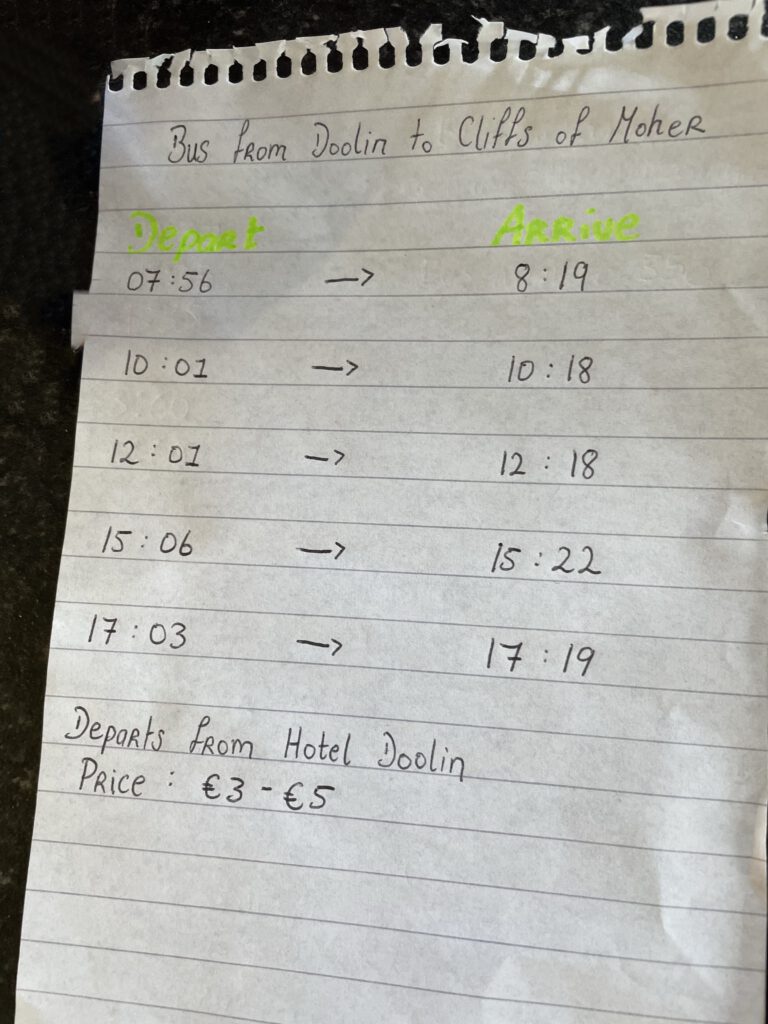 Bus from Doolin to Cliffs of Moher
Depart Arrive
07:56 → 8:19
10:01 → 10:18
12:01 → 12:18
15:06 → 15:22
17:03 → 17:19
Departs from Hotel Doolin
Price : €3 - €5